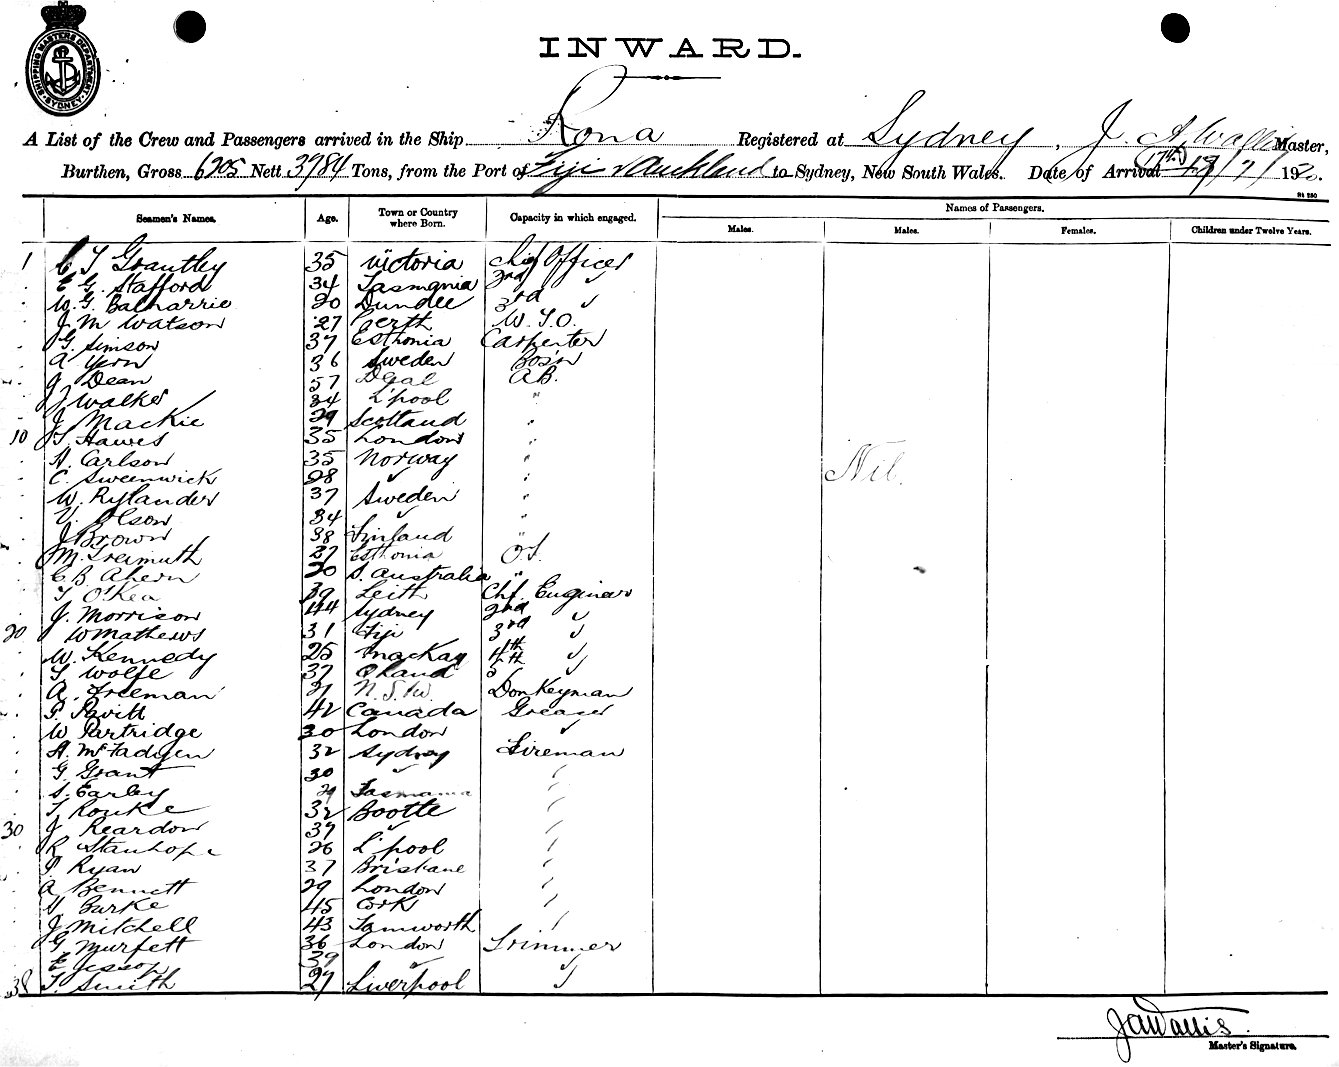 SHIPPING MASTERS DEPARTMENT SYDNEY
INWARD.
A List of the Crew and Passengers arrived in the Ship Rona Registered at Sydney, J. A. Wallis Master,
Burthen, Gross 6205 Nett 3784 Tons, from the Port of Fiji & Auckland to Sydney, New South Wales. Date of Arrival 17th 7/1920.
Seamen's Names. Age. Town or Country where Born. Capacity in which engaged. Names of Passengers.
Males. Males. Females. Children under Twelve Years.
1 C T Grantley 35 Victoria Chief Officer
E G. Stafford 34 Tasmania 2nd "
W. G. Balharrie 20 Dundee 3rd "
J M Watson 27 Perth W.T.O.
G. Simson 37 Esthonia Carpenter
A Yern 36 Sweden Bos'n
J Dean 57 AB.
J Walker 34 L'pool "
J. Mackie 29 Scotland "
10 T. Hawes 35 London "
N. Carlson 35 Norway "
C. Sweenwick 28 " "
W. Rylander 37 Sweden "
V. Olson 34 " "
J Brown 38 Finland "
M. Treimuth 27 Esthonia O.S.
C B. Ahern 20 S. Australia "
T O'Kea 39 Leith Chf. Engineer
J. Morrison 44 Sydney 2nd "
20 W Mathews 31 Fiji 3rd "
W. Kennedy 25 Mackay 4th "
T. Wolfe 37 5th "
A. Freeman 21 N.S.W. Donkeyman
P. Pavitt 42 Canada Greaser
W Partridge 30 London "
A. McFadyen 32 Sydney Fireman
G. Grant 30 " "
S. Earley 29 Tasmania "
T Rourke 32 Bootle "
30 J Reardon 37 " "
R Stanhope 26 L'pool "
P. Ryan 37 Brisbane "
A Bennett 29 London "
W Burke 45 Cork "
J Mitchell 43 Tamworth "
G Murfett 36 London Trimmer
E Jessop 39 " "
38 T. Smith 27 Liverpool "
Nil.
J A Wallis.
Master's Signature.